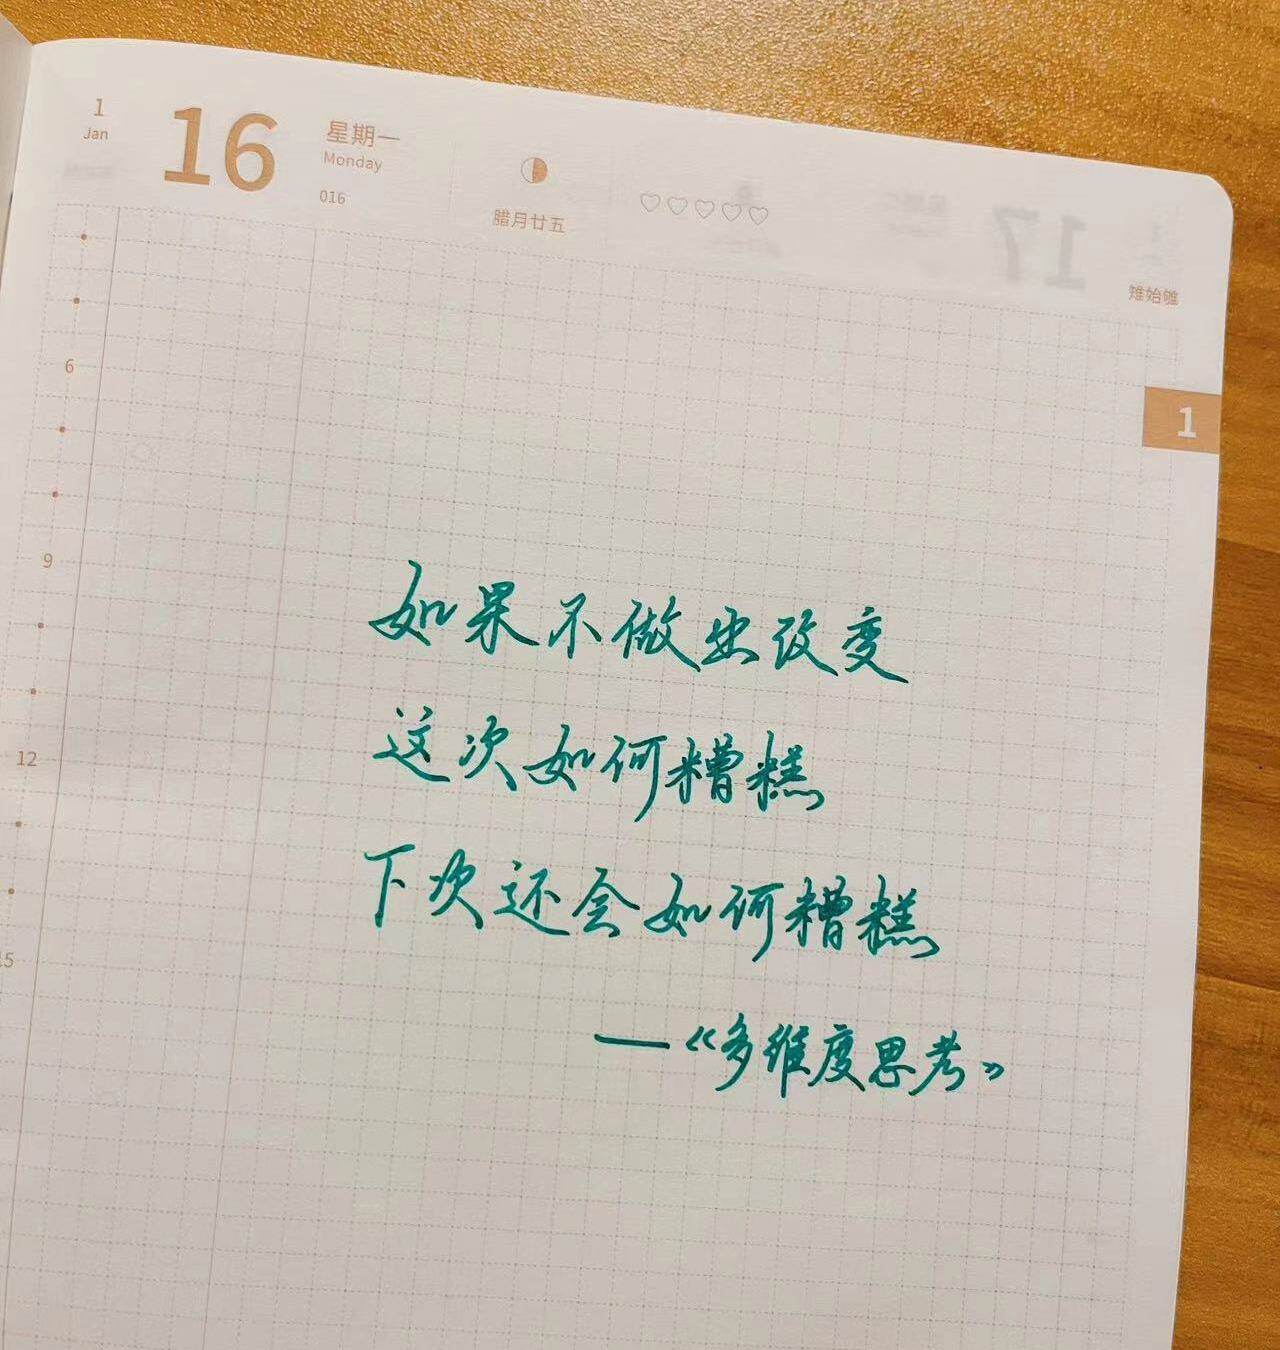 1
Jan
16
星期一
Monday
016
腊月廿五
17
雉始雊
1
6
9
12
15
如果不做出改变
这次如何糟糕
下次还会如何糟糕
—《多维度思考》